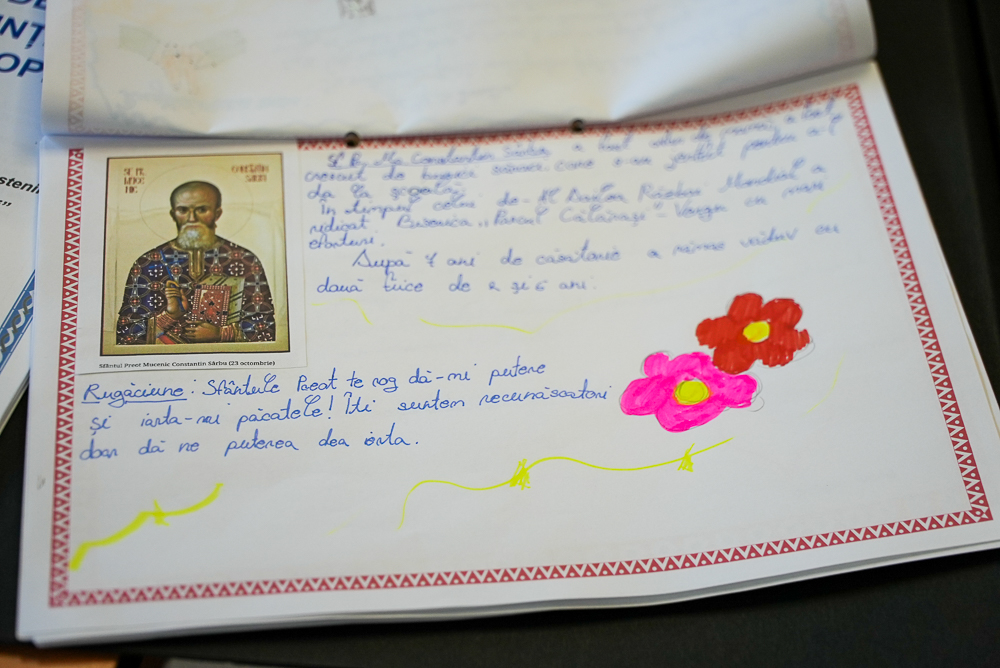 OP
SF. PR.
MUCE
NIC
CONSTANTIN
SÂRBU
Sfântul Preot Mucenic Constantin Sârbu (23 octombrie)
Sf. Pr. Mc. Constantin Sârbu a fost
crescut de bunica
da la școală.
În timpul celui de-Al Doilea Război Mondial a
ridicat Biserica „Parcul Călărași"-Vergu cu mari
eforturi.
După 7 ani de căsătorie a rămas văduv cu
două fiice de 2 și 6 ani.
Rugăciune: Sfântule Preot te rog dă-mi putere
și iartă-mi păcatele! Îți suntem recunăscători
doar dă ne puterea dea ierta.